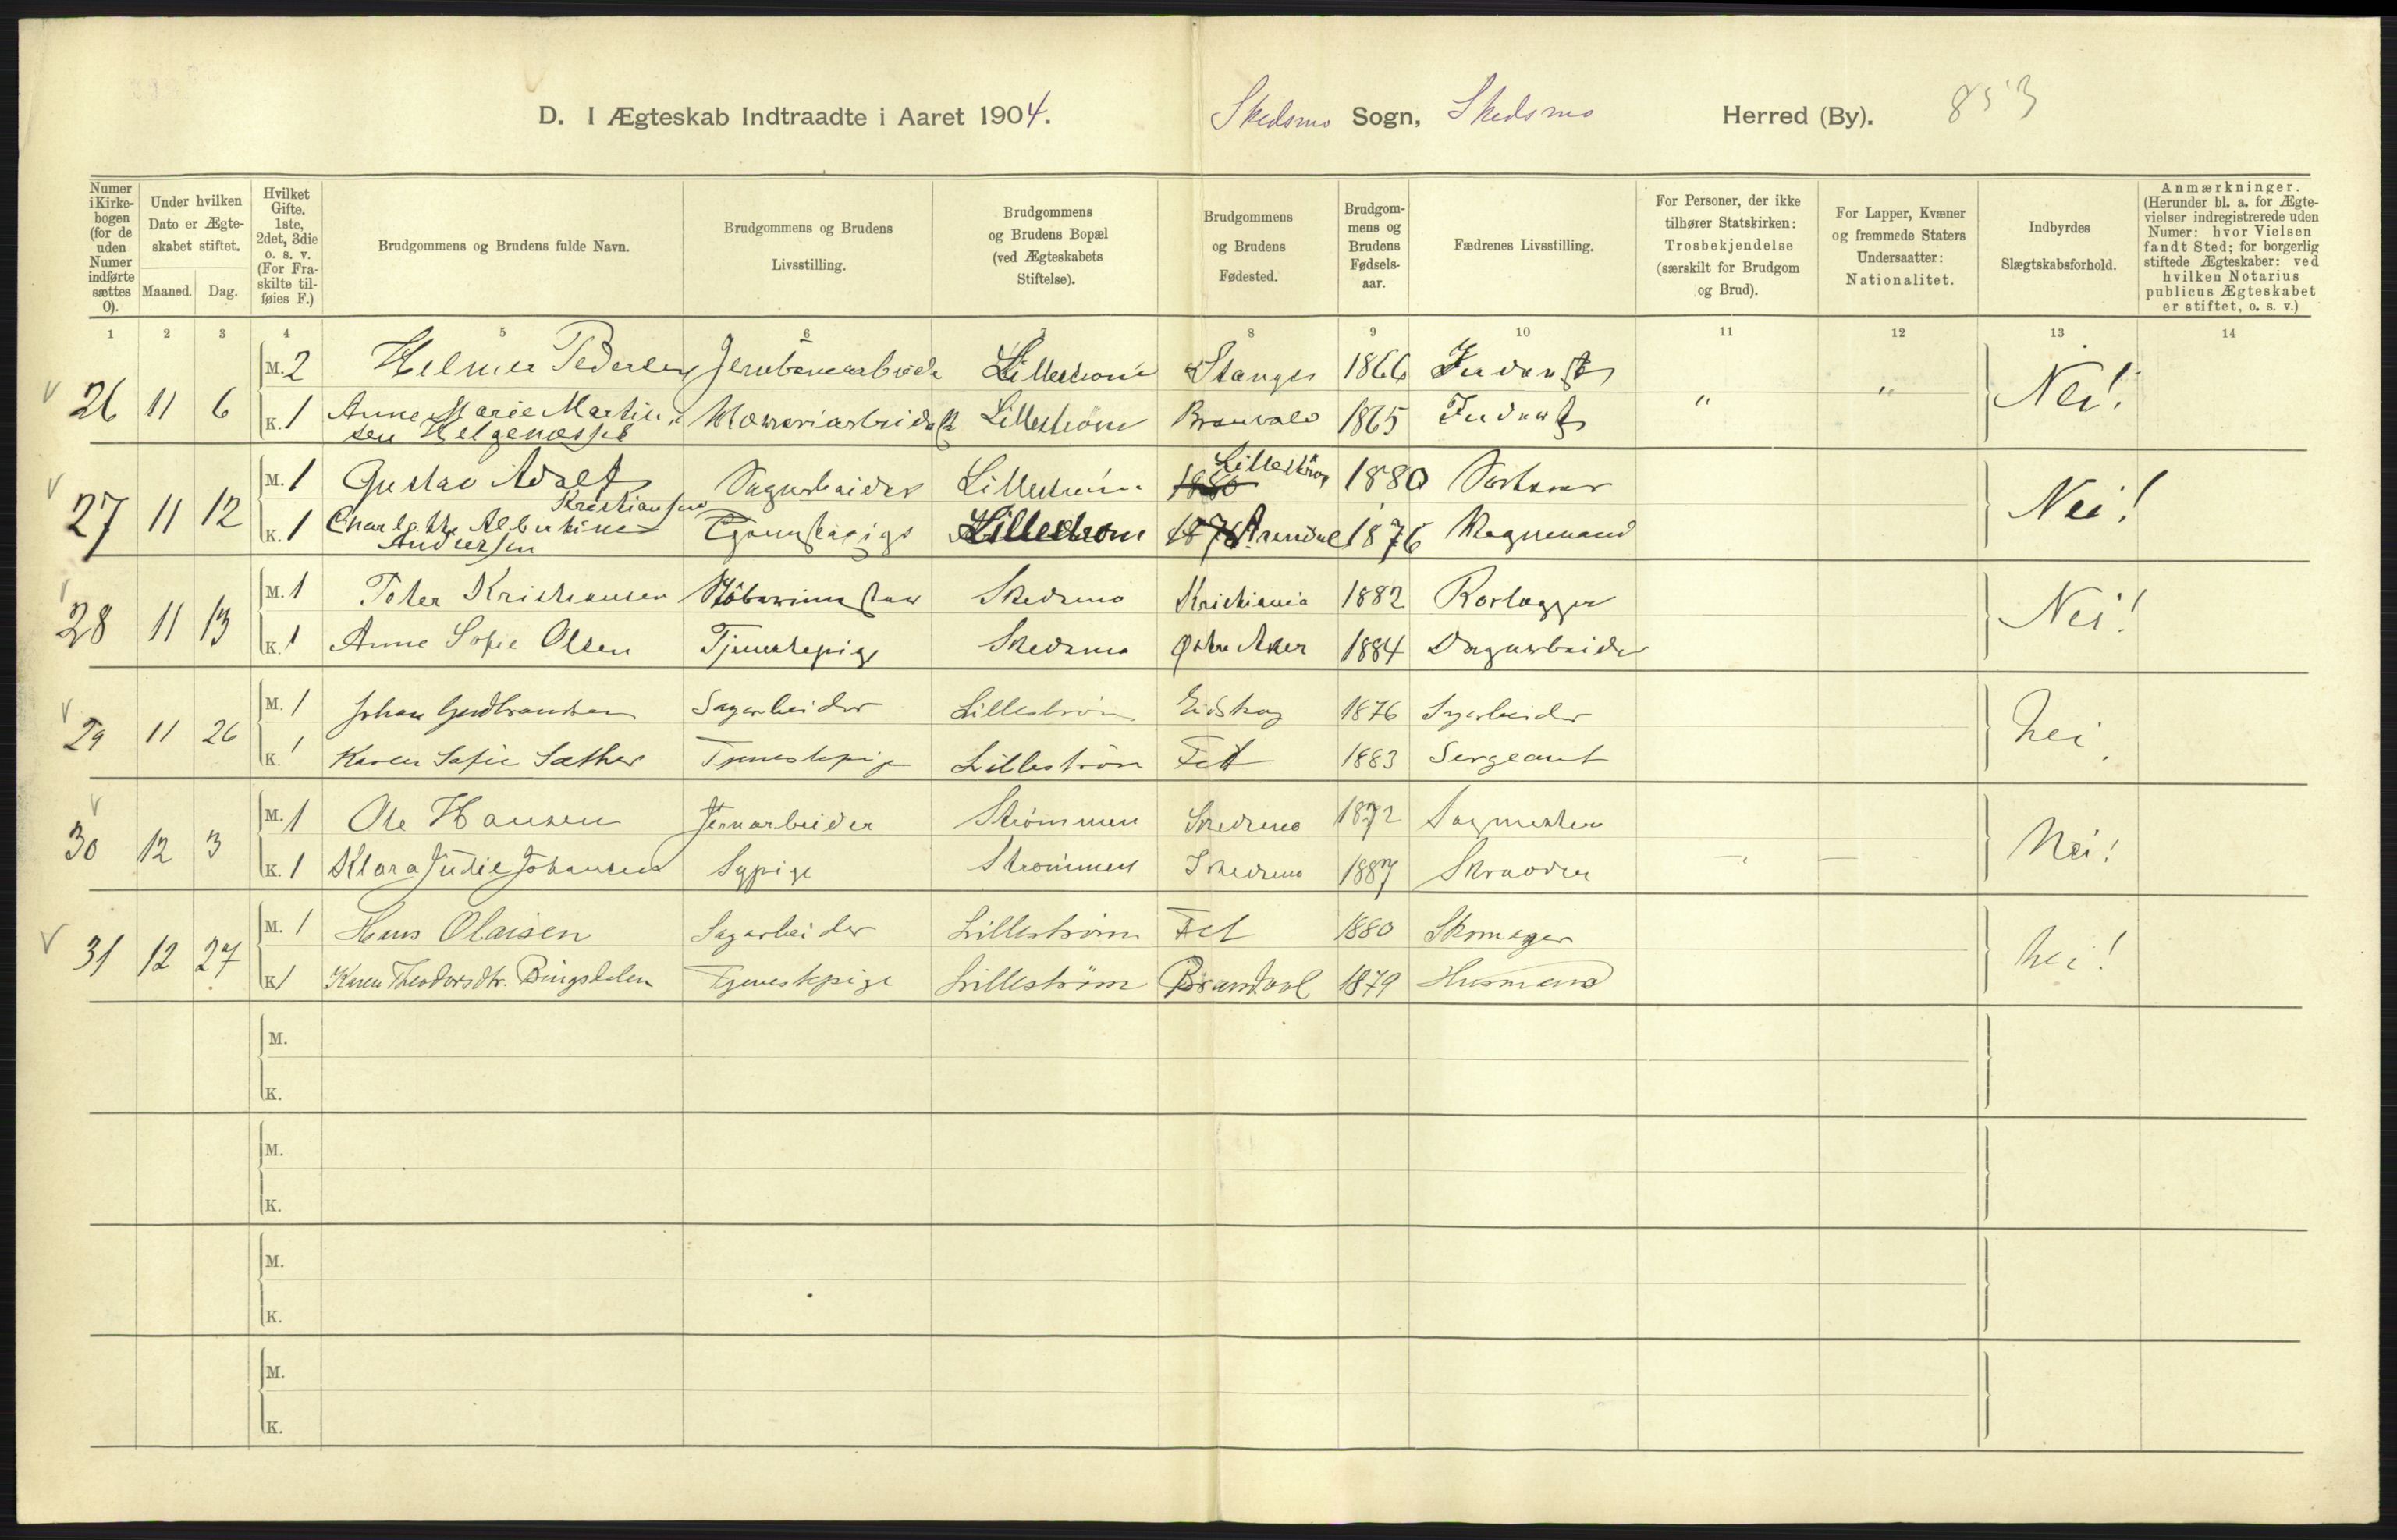 D. I Ægteskab Indtraadte i Aaret 1904. Skedsmo Sogn, Skedsmo Herred (By). 853
Numer i Kirkebogen (for de uden Numer indførte sættes 0).
Under hvilken Dato er Ægteskabet stiftet.
Maaned. Dag.
Hvilket Gifte. 1ste, 2det, 3die o. s. v. (For Fraskilte tilføies F.)
Brudgommens og Brudens fulde Navn.
Brudgommens og Brudens Livsstilling.
Brudgommens og Brudens Bopæl (ved Ægteskabets Stiftelse).
Brudgommens og Brudens Fødested.
Brudgommens og Brudens Fødselsaar.
Fædrenes Livsstilling.
For Personer, der ikke tilhører Statskirken: Trosbekjendelse (særskilt for Brudgom og Brud).
For Lapper, Kvæner og fremmede Staters Undersaatter: Nationalitet.
Indbyrdes Slægtskabsforhold.
Anmærkninger. (Herunder bl. a. for Ægtevielser indregistrerede uden Numer: hvor Vielsen fandt Sted; for borgerlig stiftede Ægteskaber: ved hvilken Notarius publicus Ægteskabet er stiftet, o. s. v.)
1 2 3 4 5 6 7 8 9 10 11 12 13 14
26 11 6 M. 2 Helmer Pedersen Lillestrøm Stange 1866 Nei!
K. 1 Anne Marie Martinsen Lillestrøm 1865 " "
27 11 12 M. 1 Gustav Adolf Kristiansen Sagarbeider Lillestrøm 1880 Lillestrøm 1880 Nei!
K. 1 Charlotte Albertine Andersen Tjenestepige Lillestrøm 1876 Arendal 1876
28 11 13 M. 1 Peter Kristiansen Skedsmo Kristiania 1882 Nei!
K. 1 Anne Sofie Olsen Tjenestepige Skedsmo Østre Aker 1884 Dagarbeider
29 11 26 M. 1 Johan Gudbrandsen Sagarbeider Lillestrøm Eidskog 1876 nei
K. 1 Karen Sofie Sæther Tjenestepige Lillestrøm Fet 1883 Sergeant
30 12 3 M. 1 Ole Hansen Jernarbeider Strømmen Skedsmo 1872 Sagmester Nei!
K. 1 Klara Judie Johansen Sypige Strømmen Skedsmo 1887 Skrædder
31 12 27 M. 1 Hans Olaisen Sagarbeider Lillestrøm Fet 1880 Skomager nei!
K. 1 Karen Theodorsdtr. Bingsdalen Tjenestepige Lillestrøm Brandval 1879 Husmand
M.
K.
M.
K.
M.
K.
M.
K.